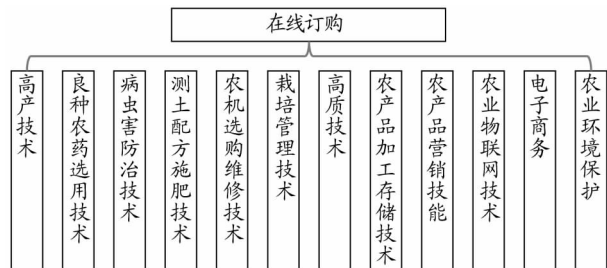 在线订购
高产技术
良种农药选用技术
病虫害防治技术
测土配方施肥技术
农机选购维修技术
栽培管理技术
高质技术
农产品加工存储技术
农产品营销技能
农业物联网技术
电子商务
农业环境保护